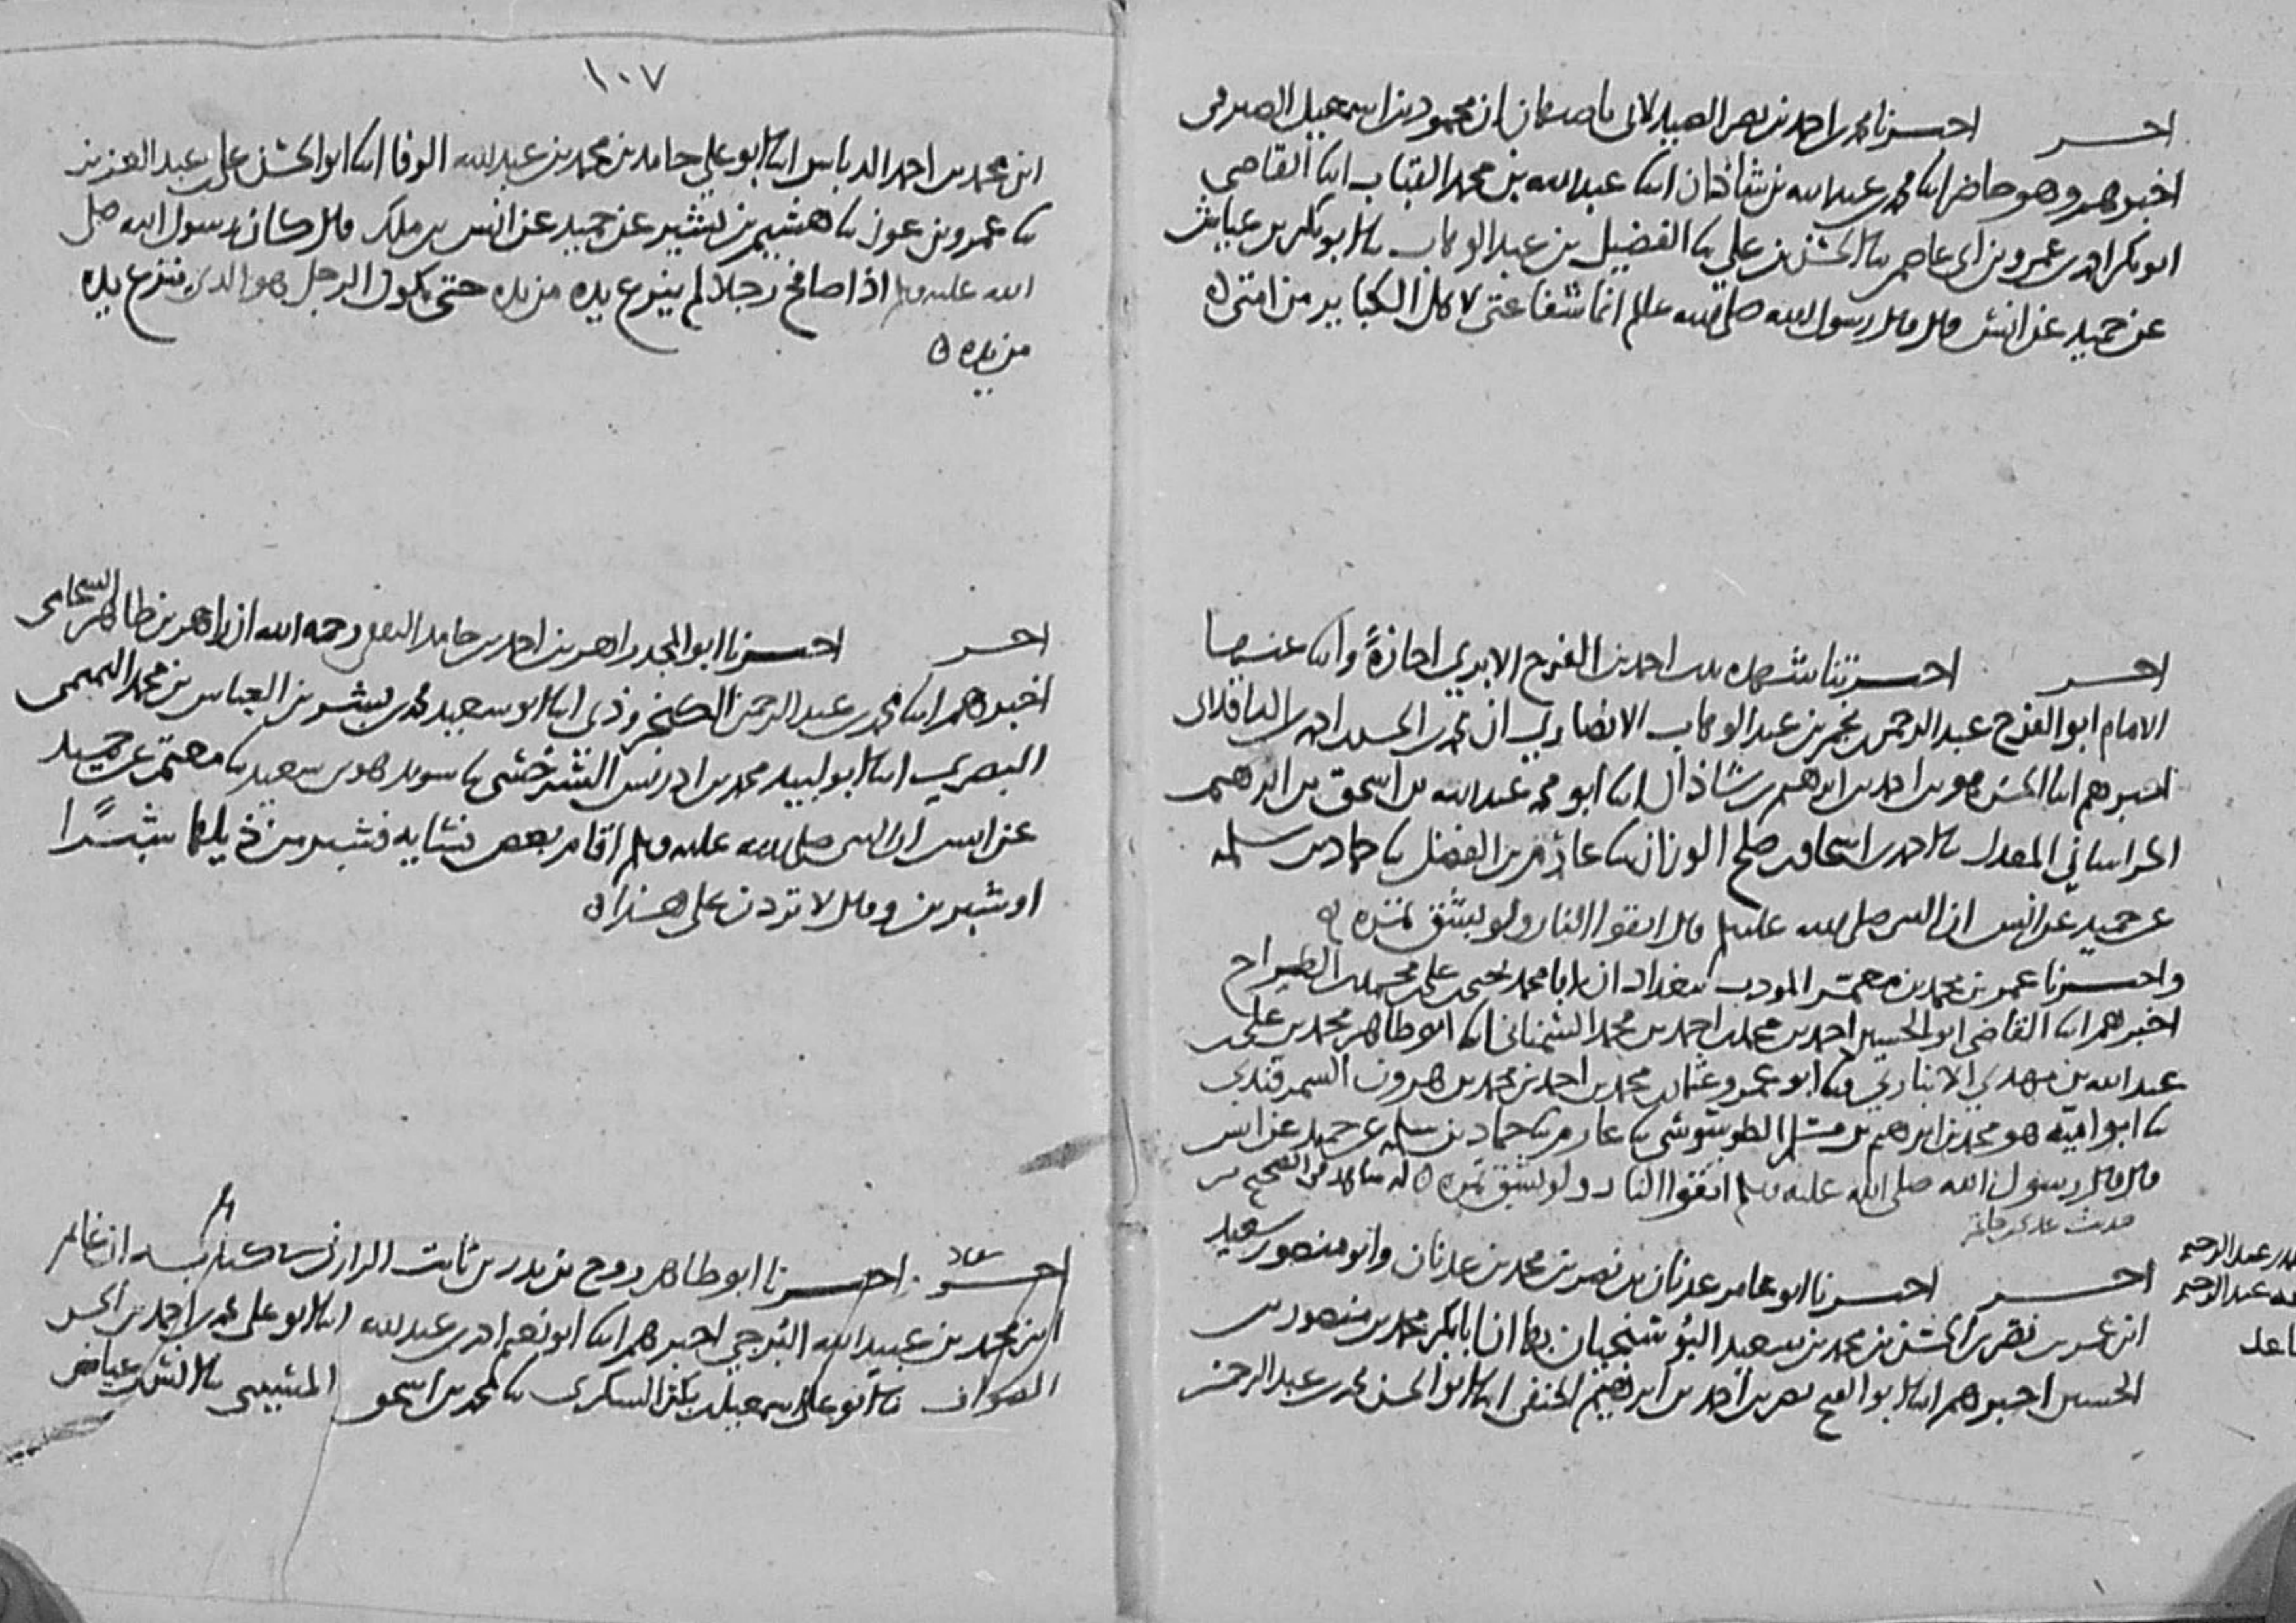 احر اخبرنا محمد بن احمد بن نصر الصيدلاني باصبهان ان محمود بن اسمعيل الصيرفي
اخبرهم وهو حاضر ابنا محمد بن عبد الله بن شاذان ابنا عبد الله بن محمد القباب ابنا القاضي
ابو بكر احمد بن عمرو بن ابي عاصم ثنا الحسن بن علي ثنا الفضيل بن عبد الوهاب ثنا ابو بكر بن عياش
عن حميد عن انس قال قال رسول الله صلى الله عليه وسلم انما شفاعتي لاهل الكباير من امتي ه
اخر اخبرتنا شهده بنت احمد بن الفرج الابري اجازةً وابنا عنها
الامام ابو الفرج عبد الرحمن بن نجم بن عبد الوهاب الانصاري ان محمد بن الحسن بن احمد الباقلاني
اخبرهم ابنا الحسن بن احمد بن ابراهيم بن شاذان ابنا ابو محمد عبد الله بن اسحق بن ابراهيم
الخراساني المعدل ثنا احمد بن اسحاق بن صلح الوزان ثنا عارم بن الفضل ثنا حماد بن سلمه
عن حميد عن انس ان النبي صلى الله عليه وسلم قال اتقوا النار ولو بشق تمره ه
واخبرنا عمر بن محمد بن معمر المودب ببغداد ان ابا محمد يحيى بن علي بن محمد بن الطراح
اخبرهم ابنا القاضي ابو الحسين احمد بن محمد بن احمد بن محمد السمناني ابنا ابو طاهر محمد بن علي بن
عبد الله بن مهدي الانباري ثنا ابو عمرو عثمان بن محمد بن احمد بن محمد بن هرون السمرقندي
ثنا ابو اميه هو محمد بن ابراهيم بن مسلم الطرسوسي ثنا عارم ثنا حماد بن سلمه عن حميد عن انس
قال قال رسول الله صلى الله عليه وسلم اتقوا النار ولو بشق تمره ه له شاهد في الصحيح من
حديث عدي بن حاتم
اخر اخبرنا ابو عامر عدنان بن نصر بن محمد بن عدنان وابو منصور سعيد
الحسين اخبرهم ابنا ابو الفتح نصر بن احمد بن ابراهيم الحنفي ابنا ابو الحسن محمد بن عبد الرحمن
١٠٧
ابن محمد بن احمد الدباس ابنا ابو علي حامد بن محمد بن عبد الله الرفا ابنا ابو الحسن علي بن عبد العزيز
ثنا عمرو بن عون ثنا هشيم بن بشير عن حميد عن انس بن ملك قال كان رسول الله صلى
الله عليه وسلم اذا صافح رجلا لم ينزع يده من يده حتى يكون الرجل هو الذي ينزع يده
من يده ه
اخر اخبرنا ابو المجد زاهر بن احمد بن حامد الثقفي رحمه الله ان زاهر بن طاهر الشحامي
اخبرهم ابنا محمد بن عبد الرحمن الكنجروذي ابنا ابو سعيد محمد بن بشر بن العباس بن محمد التميمي
البصري ابنا ابو لبيد محمد بن ادريس السرخسي ثنا سويد هو بن سعيد ثنا معتمر عن حميد
عن انس ان النبي صلى الله عليه وسلم اقام بعض نسايه فشبر من ذيلها شبرًا
او شبرين وقال لا تزدن على هذا ه
اخر اخبرنا ابو طاهر روح بن بدر بن ثابت الراراني في كتابه ان غانم
ابن محمد بن عبيد الله البرجي اخبرهم ابنا ابو نعيم احمد بن عبد الله ابنا ابو علي محمد بن احمد بن الحسن
الصواف ثنا ابو علي اسمعيل بن بكر السكري ثنا محمد بن اسحق المسيبي ثنا انس بن عياض